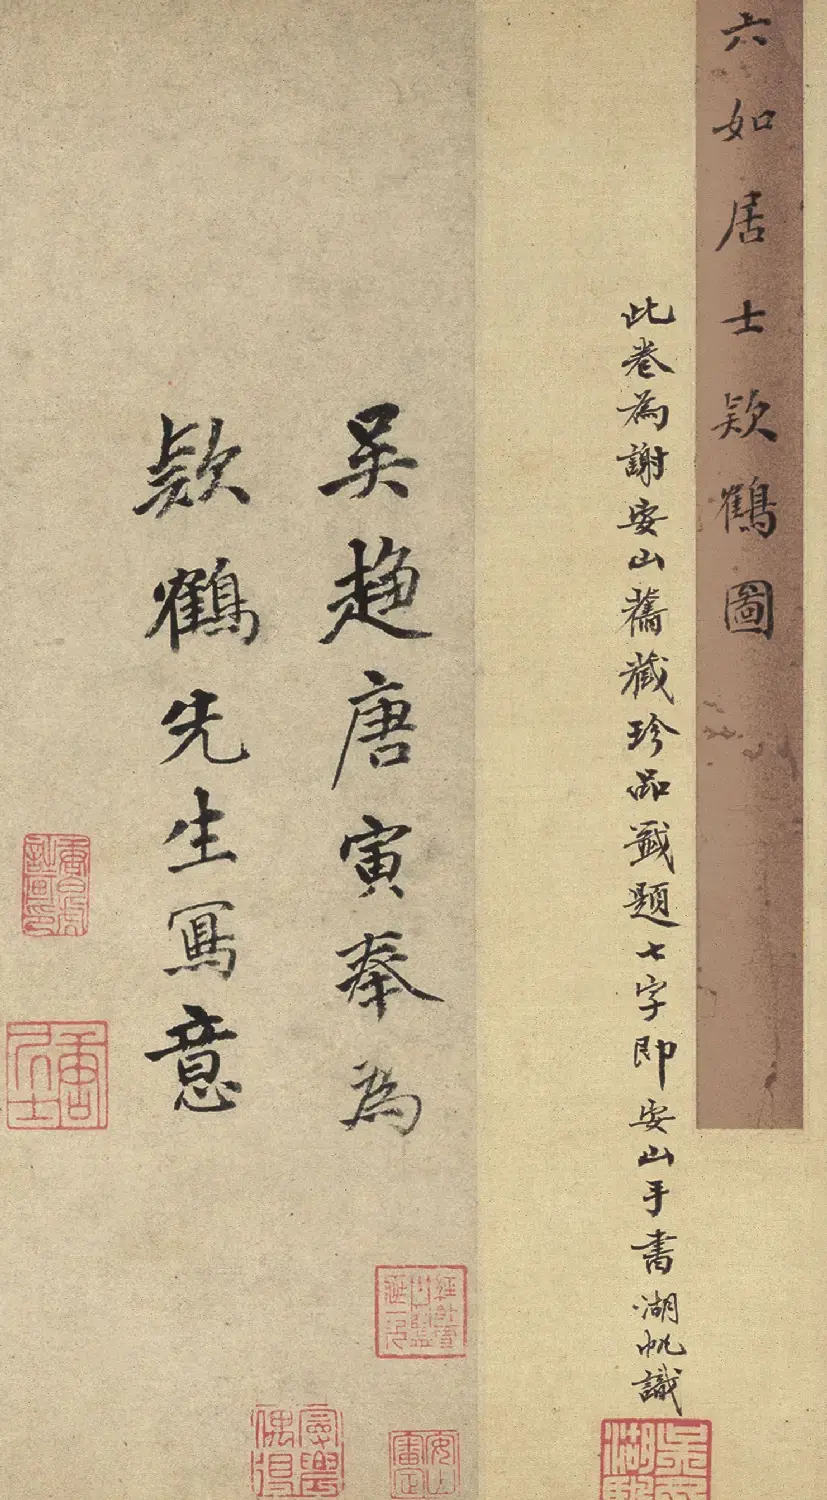 六如居士款鶴圖
此卷為謝安山舊藏珍品籤題七字即安山手書湖帆識
吳趨唐寅奉為
款鶴先生寫意